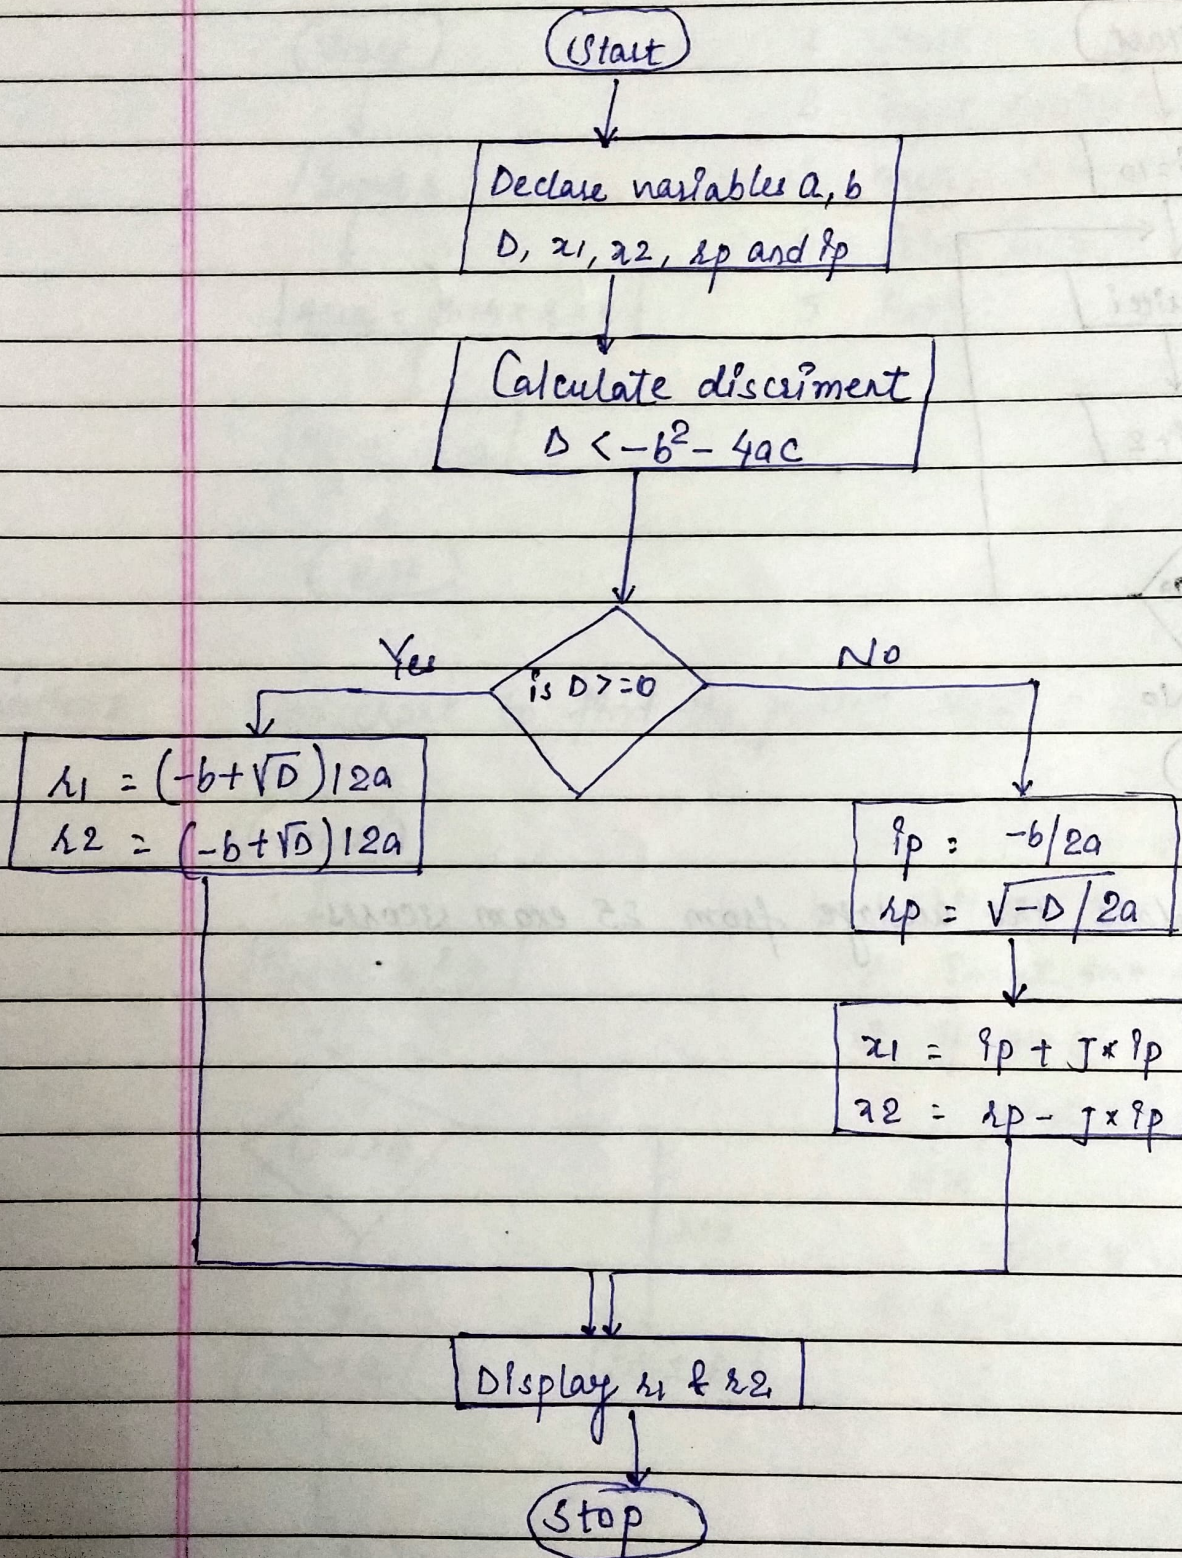 Start
Declare variables a, b
D, x1, x2, rp and ip
Calculate discriment
D <-b² - 4ac
is D>=0
Yes
No
r1 = (-b+√D)12a
r2 = (-b+√D)12a
ip = -b/2a
rp = √-D/2a
x1 = ip + J* ip
x2 = rp - J* ip
Display r1 & r2
Stop